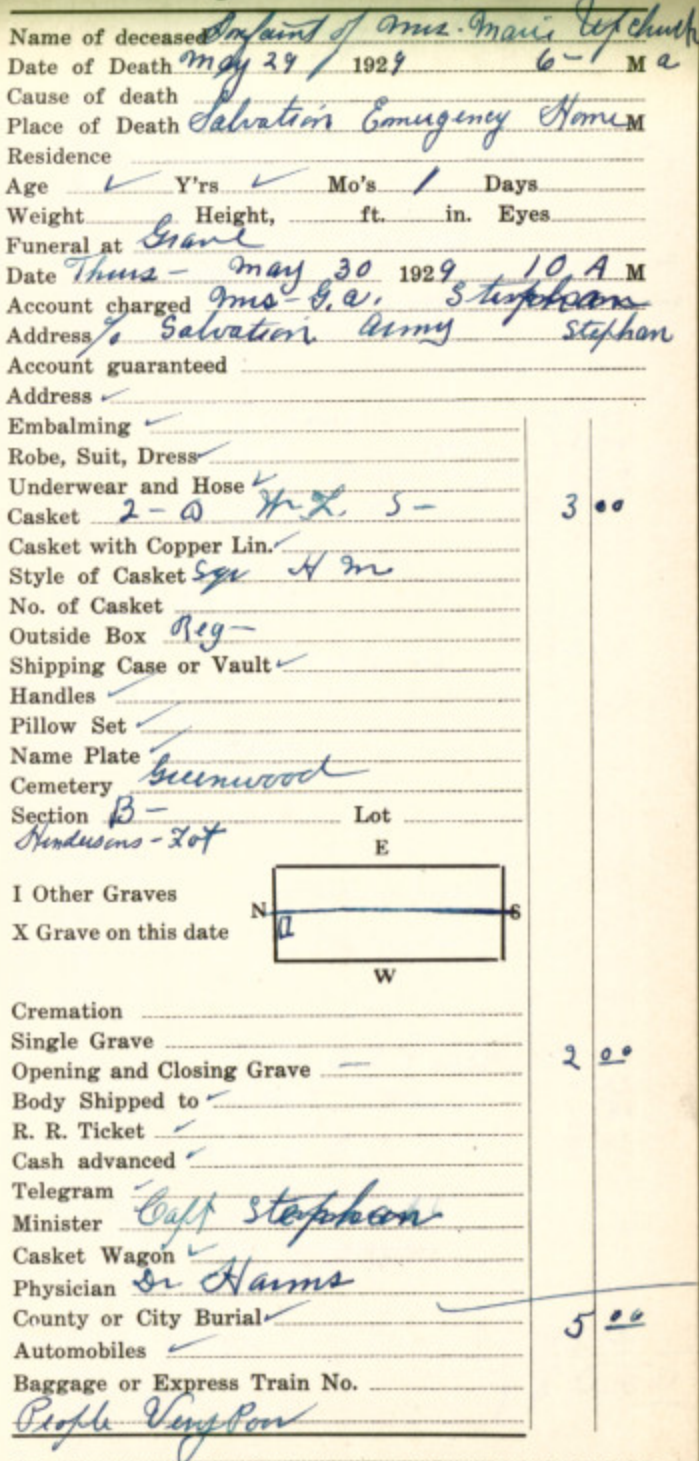 Name of deceased Infaint of Mrs. Marie Upchurch
Date of Death May 29 1929 6- M a
Cause of death
Place of Death Salvation Emergency Home M
Residence
Age ✓ Y'rs ✓ Mo's 1 Days
Weight Height, ft. in. Eyes
Funeral at Grave
Date Thurs - May 30 1929 10 A M
Account charged Mrs - G.A. Stephan
Address c/o Salvation Army Stephan
Account guaranteed
Address ✓
Embalming ✓
Robe, Suit, Dress ✓
Underwear and Hose ✓
Casket 2-0 S- 3 00
Casket with Copper Lin. ✓
Style of Casket Sqr H M
No. of Casket
Outside Box Reg-
Shipping Case or Vault ✓
Handles ✓
Pillow Set ✓
Name Plate ✓
Cemetery Greenwood
Section B- Lot
Hendersons-Lot
E
I Other Graves
N S
X Grave on this date
W
Cremation
Single Grave
Opening and Closing Grave — 2 00
Body Shipped to ✓
R. R. Ticket ✓
Cash advanced ✓
Telegram ✓
Minister Capt Stephan
Casket Wagon ✓
Physician Dr Harms
County or City Burial ✓ 5 00
Automobiles ✓
Baggage or Express Train No.
People Very Poor